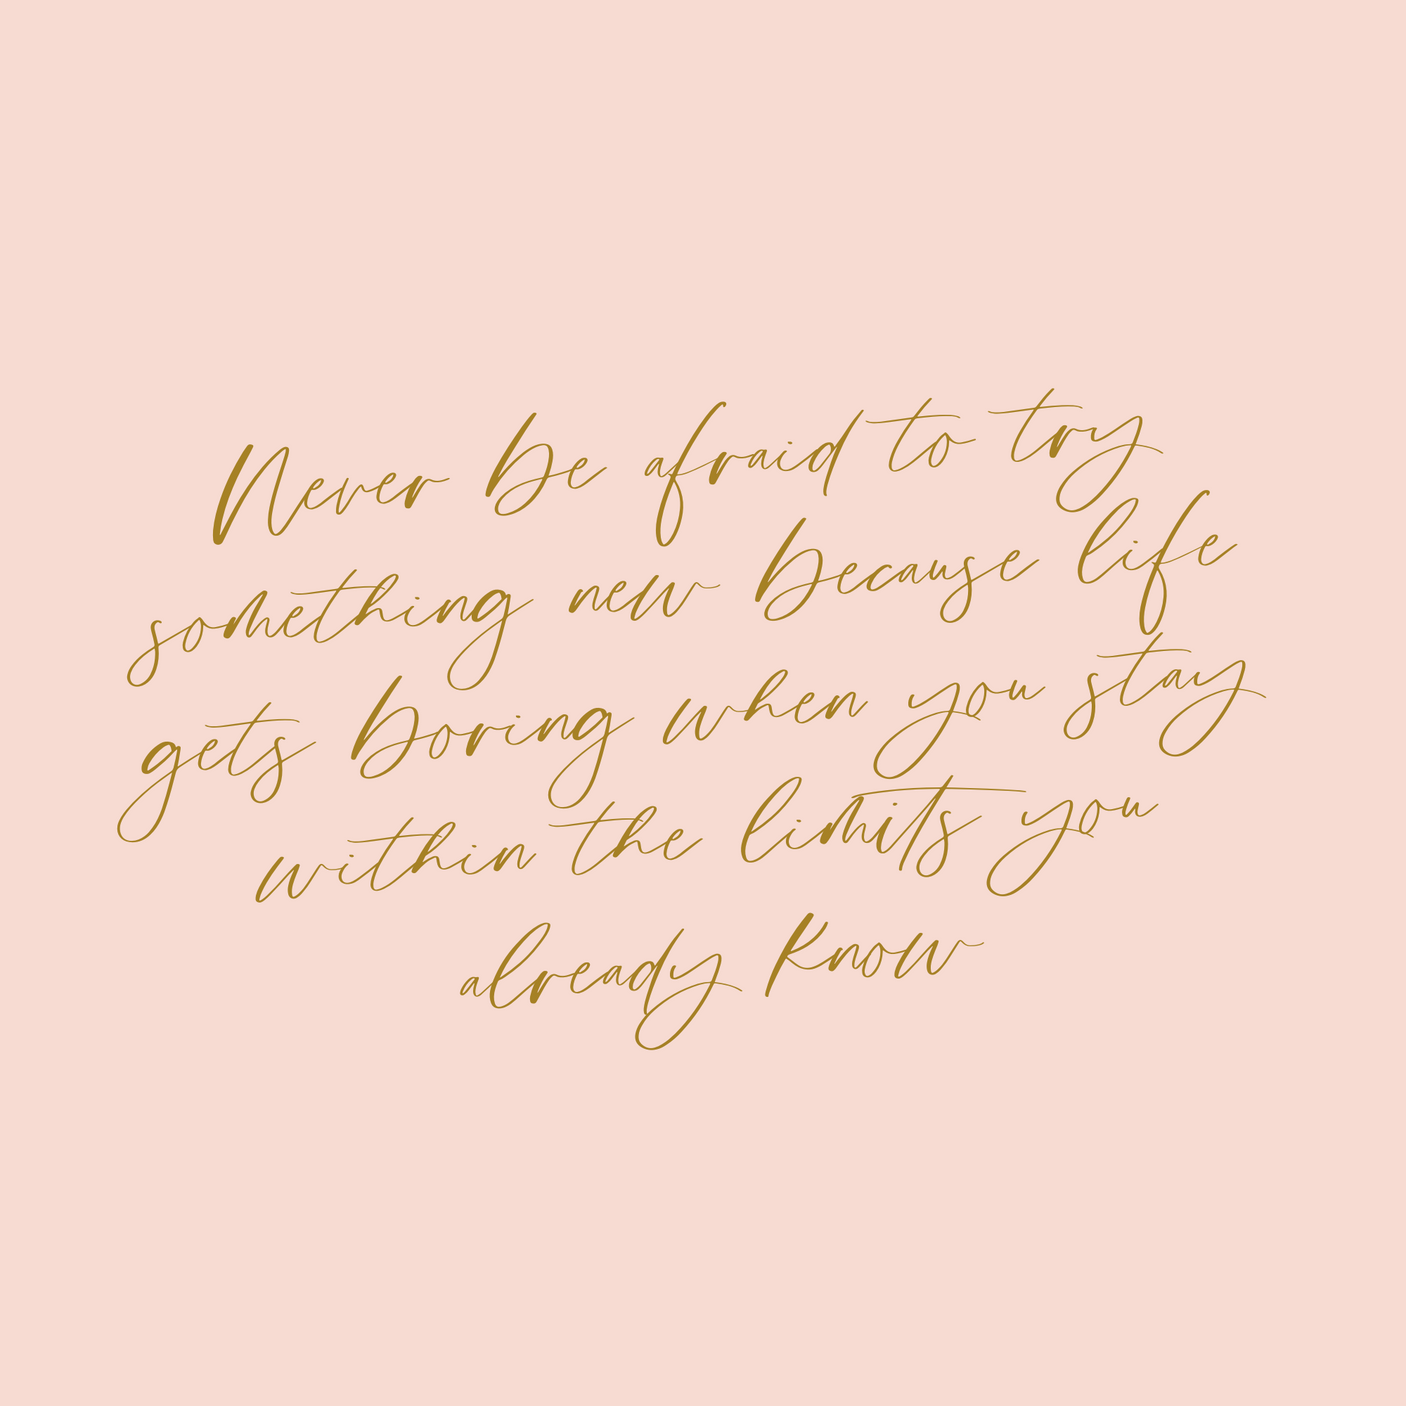 Never be afraid to try
something new because life
gets boring when you stay
within the limits you
already know